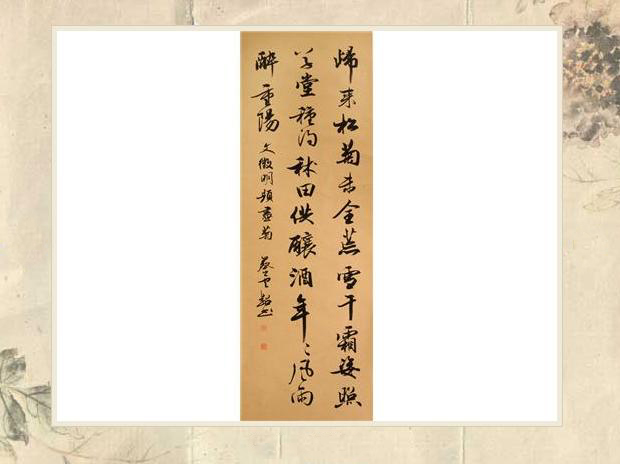 歸来松菊未全荒雪干霜姿照
草堂種得秫田供釀酒年〻風雨
醉重陽 文徵明題畫菊